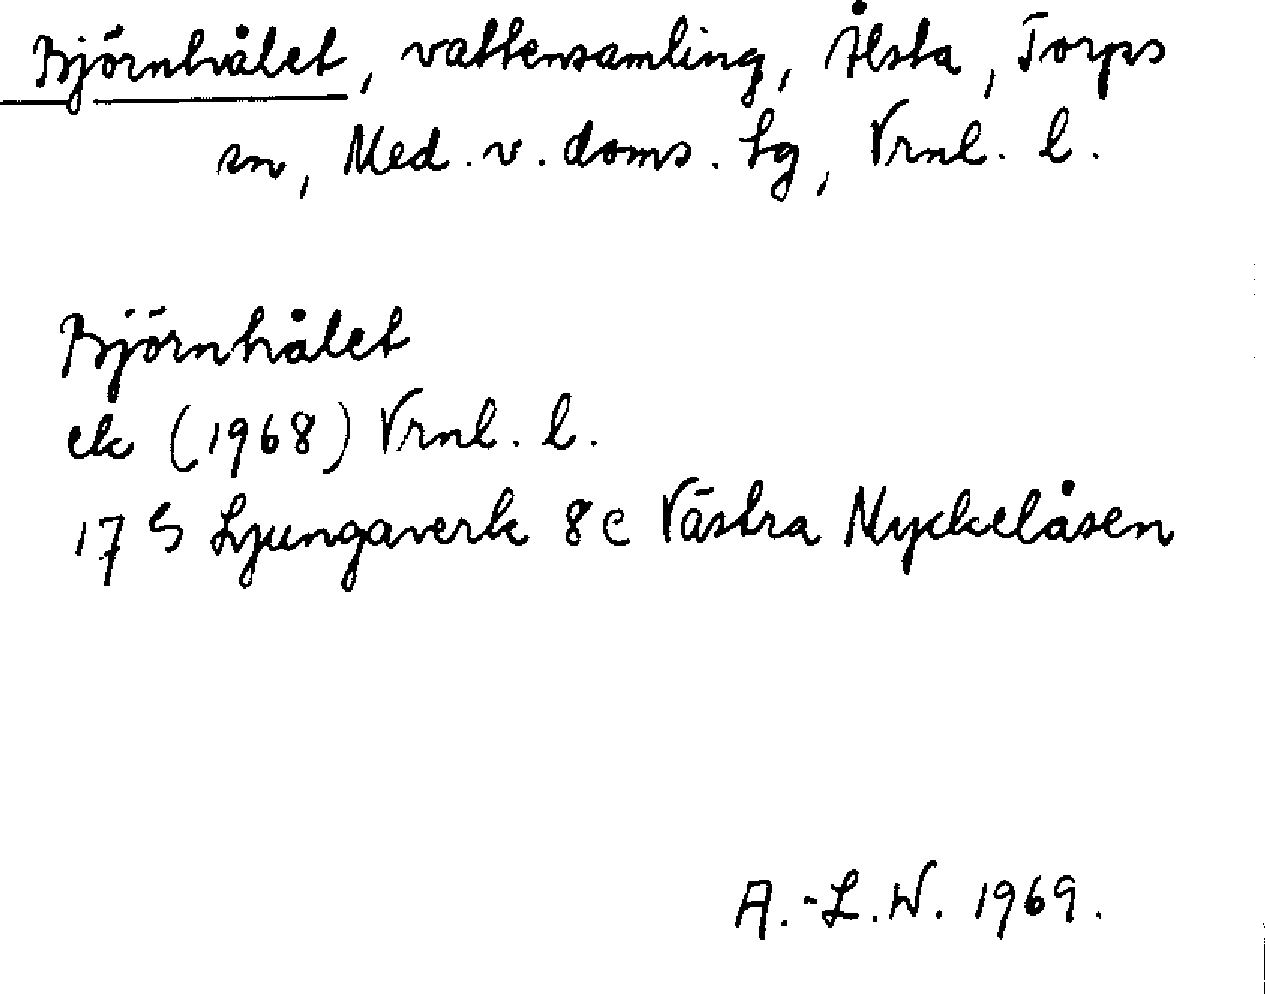 Björnhålet, vattensamling, Ålsta, Torps
sn, Med. v. doms. hg, Vrnl. l.
Björnhålet
ek (1968) Vrnl. l.
17 G Ljungaverk 8c Västra Nyckelåsen
A.-L.W. 1969.